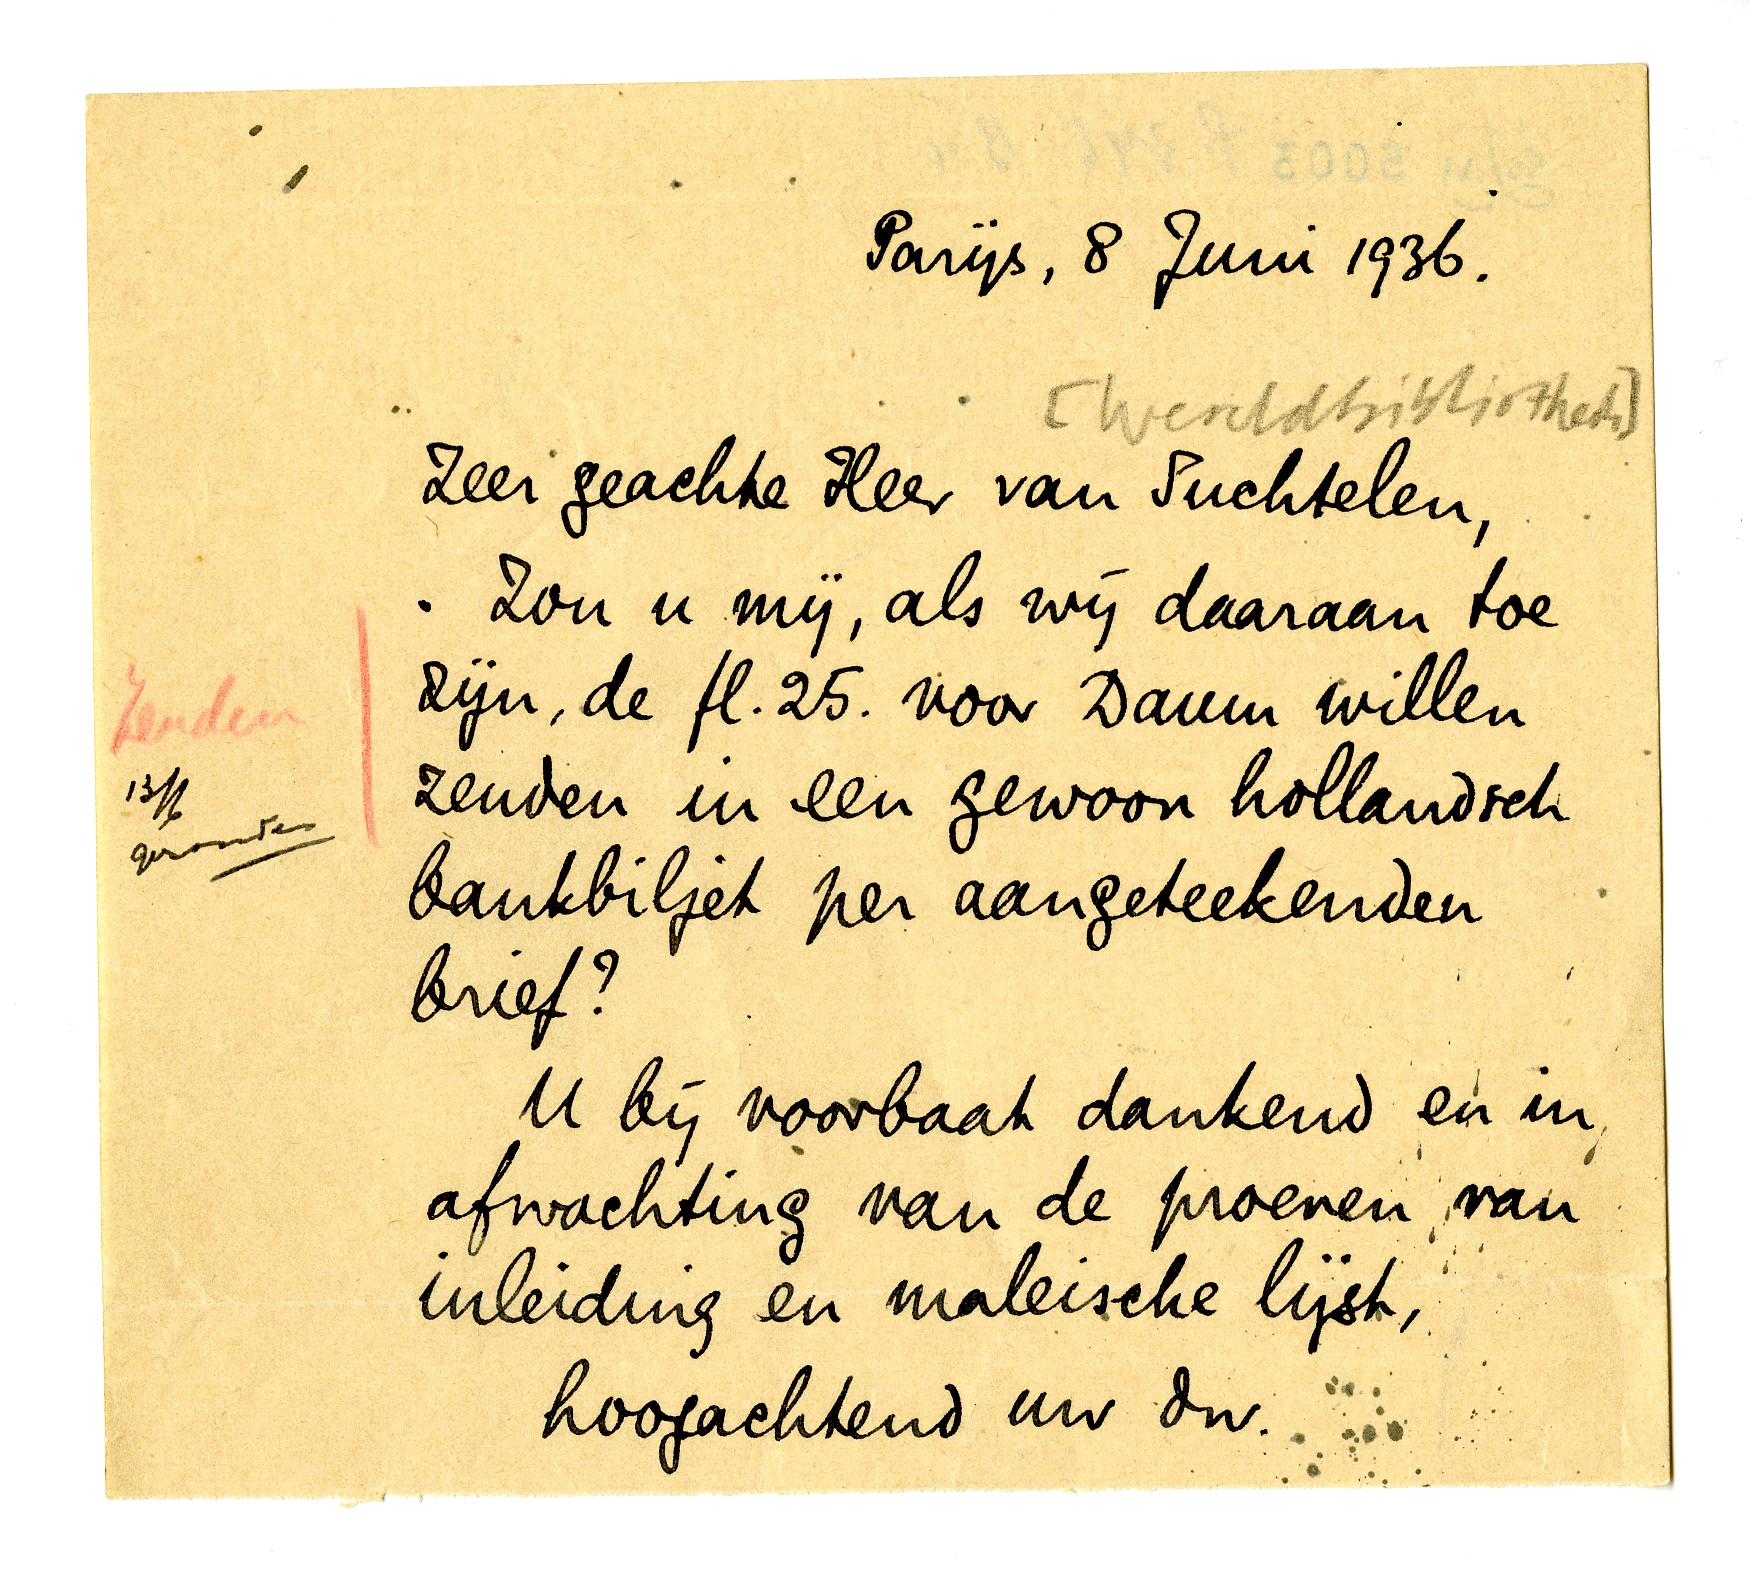 Parijs, 8 Juni 1936.
[Wereldbibliotheek]
Zeer geachte Heer van Suchtelen,
Zou u mij, als wij daaraan toe
zijn, de fl. 25. voor Daum willen
zenden in een gewoon hollandsch
bankbiljet per aangeteekenden
brief?
zenden
13/6
gezonden
U bij voorbaat dankend en in
afwachting van de proeven van
inleiding en maleische lijst,
hoogachtend uw dw.